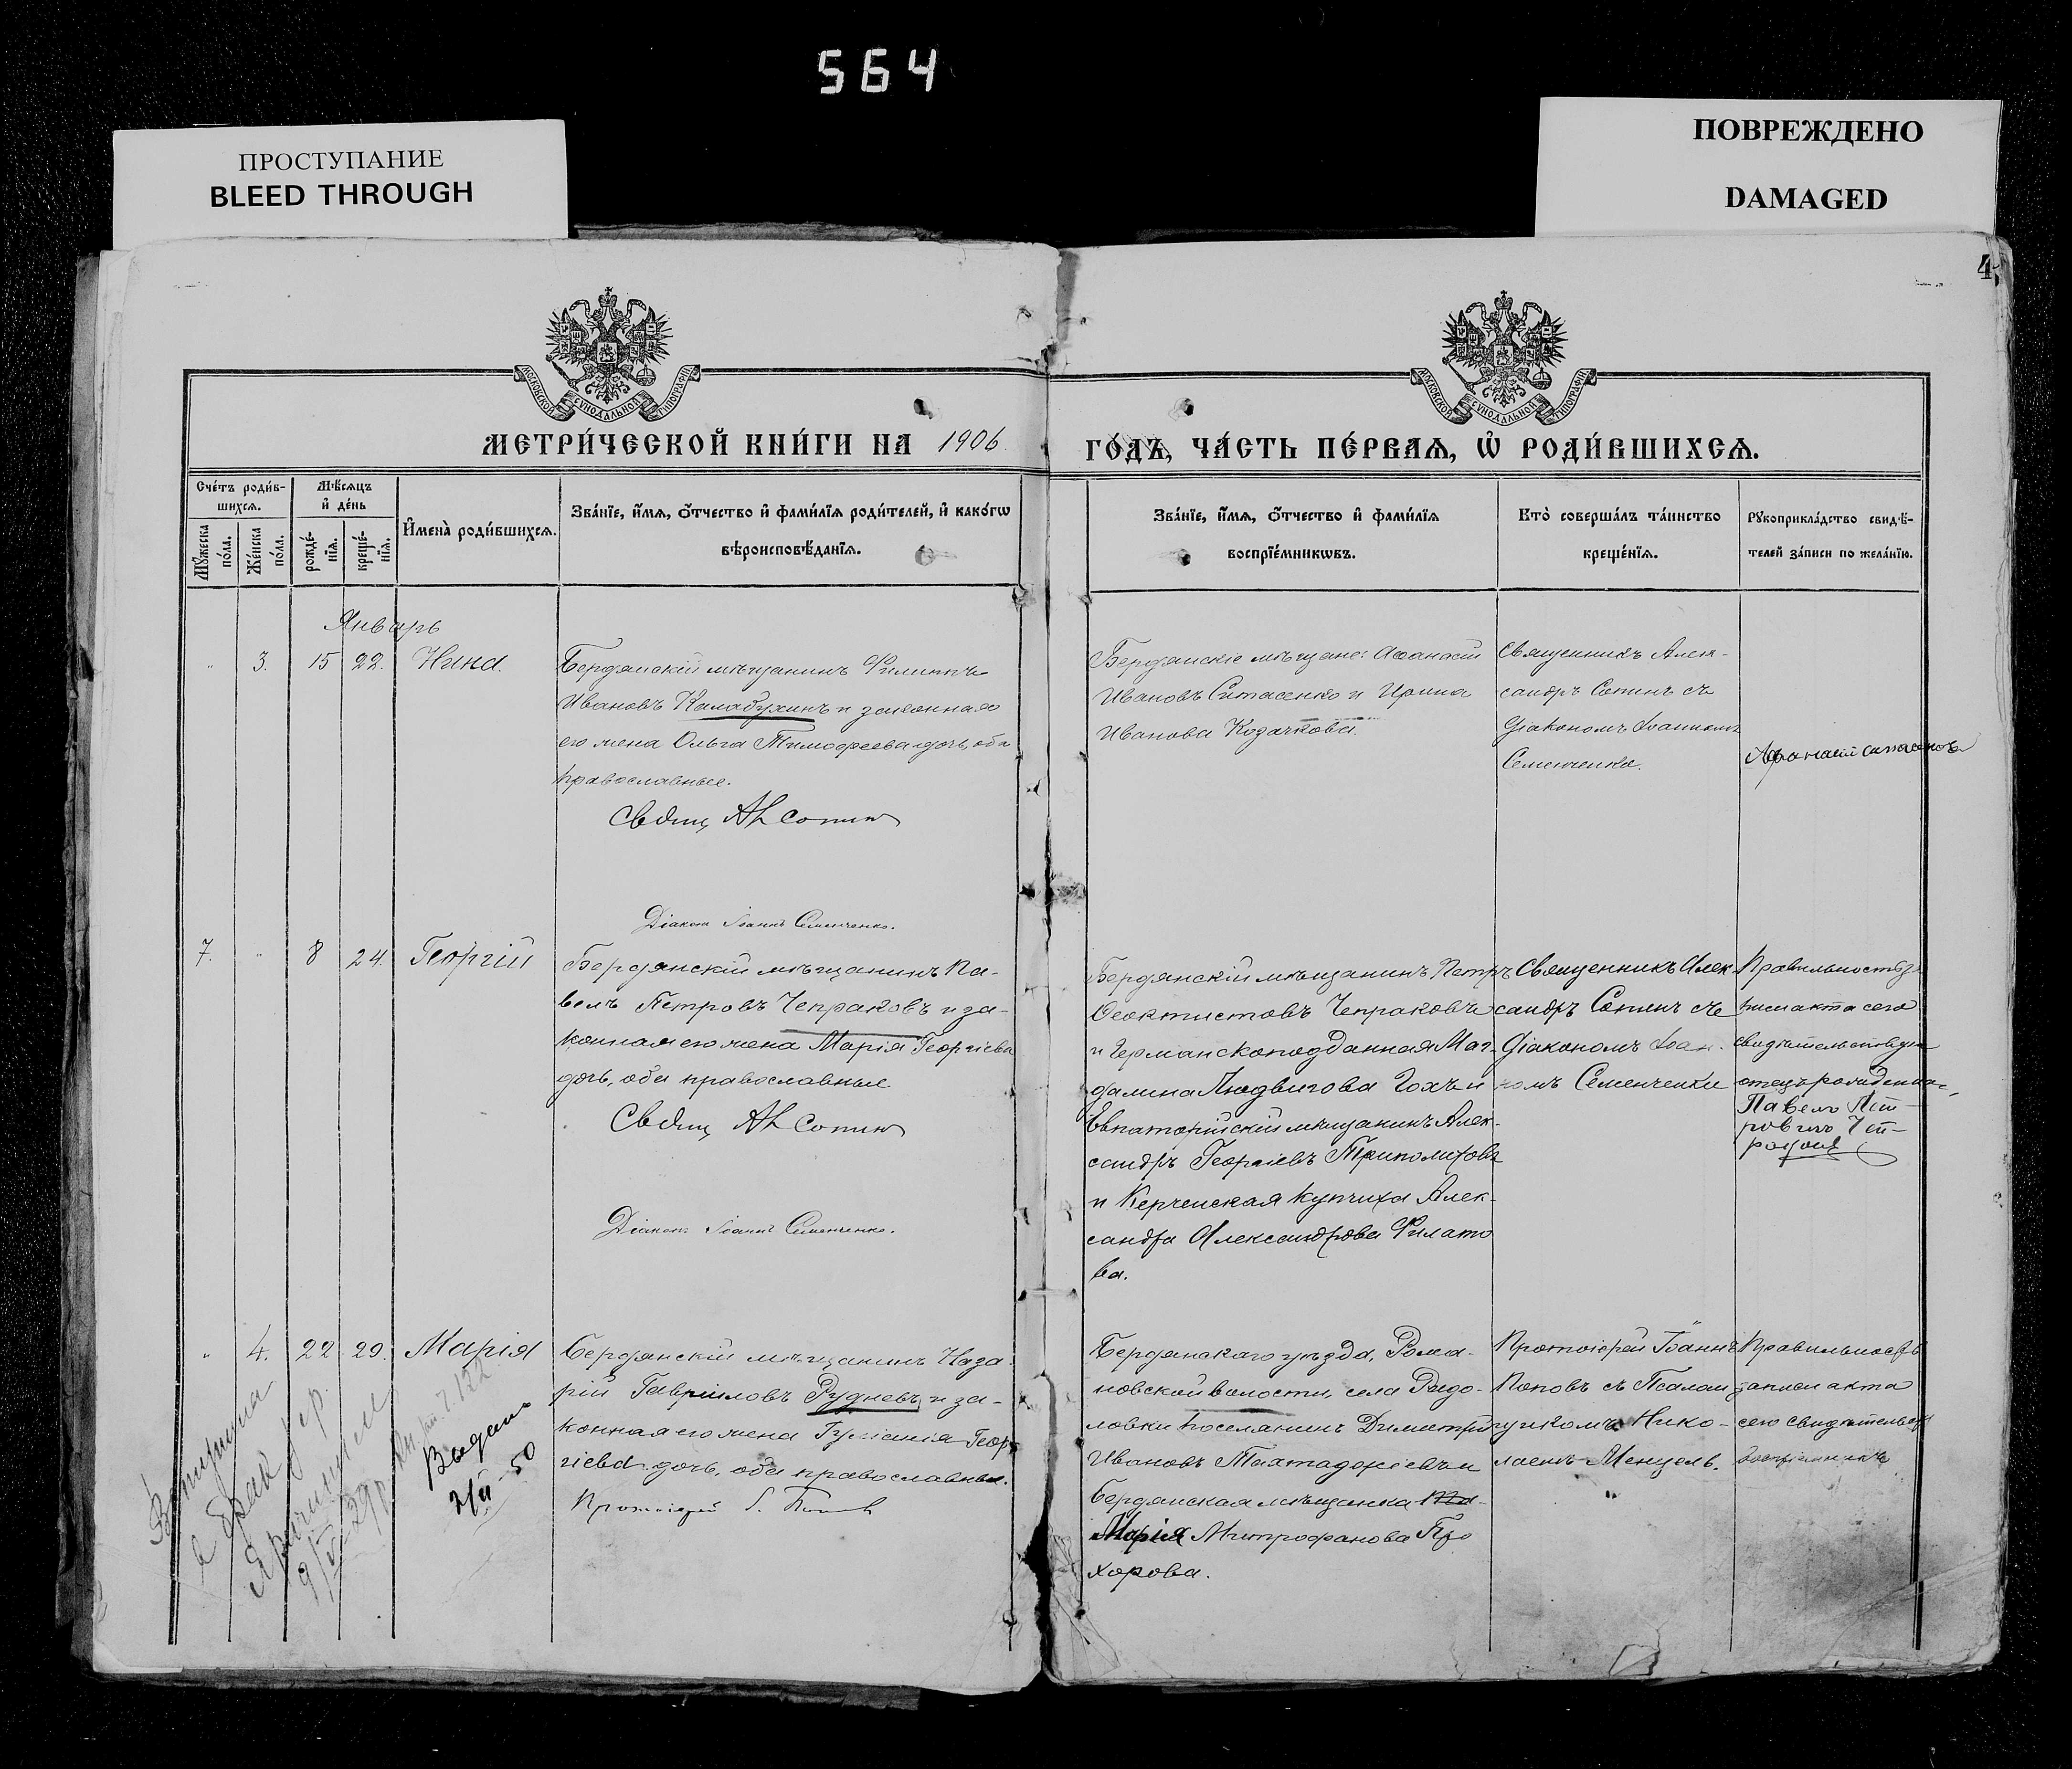 564
ПРОСТУПАНИЕ
BLEED THROUGH
ПОВРЕЖДЕНО
DAMAGED
4
МОСКОВСКОЙ СУНОДАЛЬНОЙ ТИПОГРАФІИ
МОСКОВСКОЙ СУНОДАЛЬНОЙ ТИПОГРАФІИ
МЕТРИ́ЧЕСКОЙ КНИ́ГИ НА 1906
ГО́ДЪ, ЧА́СТЬ ПЕ́РВАѦ, Ѡ҆ РОДИ́ВШИХСѦ.
Сче́тъ роди́в-
шихсѧ.
Мꙋ́жеска по́ла.
Же́нска по́ла.
Мѣ́сѧцъ
и҆ де́нь
рожде́-
нїѧ.
креще́-
нїѧ.
И҆мена̀ роди́вшихсѧ.
Зва́нїе, и҆́мѧ, о҆́тчество и҆ фами́лїѧ роди́телей, и҆ како́гѡ
вѣроисповѣ́данїѧ.
Зва́нїе, и҆́мѧ, о҆́тчество и҆ фами́лїѧ
воспрїе́мникѡвъ.
Кто̀ соверша́лъ та́инство
креще́нїѧ.
Рꙋкоприкла́дство свидѣ́-
телей за́писи по жела́нїю.
Январь
" 3. 15 22. Нина.
Бердянскій мѣщанинъ Филиппъ
Ивановъ Калабухинъ и законная
его жена Ольга Тимофеева дочь, оба
православные.
Свящ Ал Сопин
Діаконъ Іоаннъ Семенченко.
Бердянскіе мѣщане: Афанасій
Ивановъ Ситасенко и Ирина
Иванова Козачкова.
Священникъ Алек-
сандръ Сопинъ съ
Діакономъ Іоанномъ
Семенченко.
Афанасій
7. " 8 24. Георгій
Бердянскій мѣщанинъ Па-
велъ Петровъ Чепраковъ и за-
конная его жена Марія Георгіева
дочь, оба православные.
Свящ Ал Сопин
Діаконъ Іоаннъ Семенченко.
Бердянскій мѣщанинъ Петръ
Феоктистовъ Чепраковъ
и Германскоподданная Маг-
далина Людвигова Гохъ и
Евпаторійскій мѣщанинъ Алек-
сандръ Георгіевъ Триполитовъ
и Керченская купчиха Алек-
сандра Александрова Филато
ва.
Священникъ Алек-
сандръ Сопинъ съ
Діакономъ Іоан-
номъ Семенченко
Правильность за-
писи акта сего
свидѣтельствуетъ
отецъ
Павелъ Пет-
ровичъ Чеп-
раковъ
" 4. 22 29. Марія
Бердянскій мѣщанинъ Наза-
рій Гавриловъ Рудневъ, и за-
конная его жена Геор-
гіева дочь, оба православные.
Протоіерей І. Попов
Бердянскаго уѣзда, Рома-
новской волости, села
поселянинъ Димитрій
Ивановъ и
Бердянская мѣщанка
Марія Митрофанова Про
хорова.
Протоіерей Іоаннъ
Поповъ съ Псалом
щикомъ Нико-
лаемъ Менцель.
Правильность
записи акта
сего свидѣтельств
воспріемникъ
Выдано
50